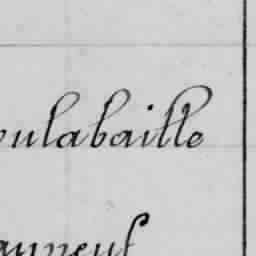 oulabaille
auneuf